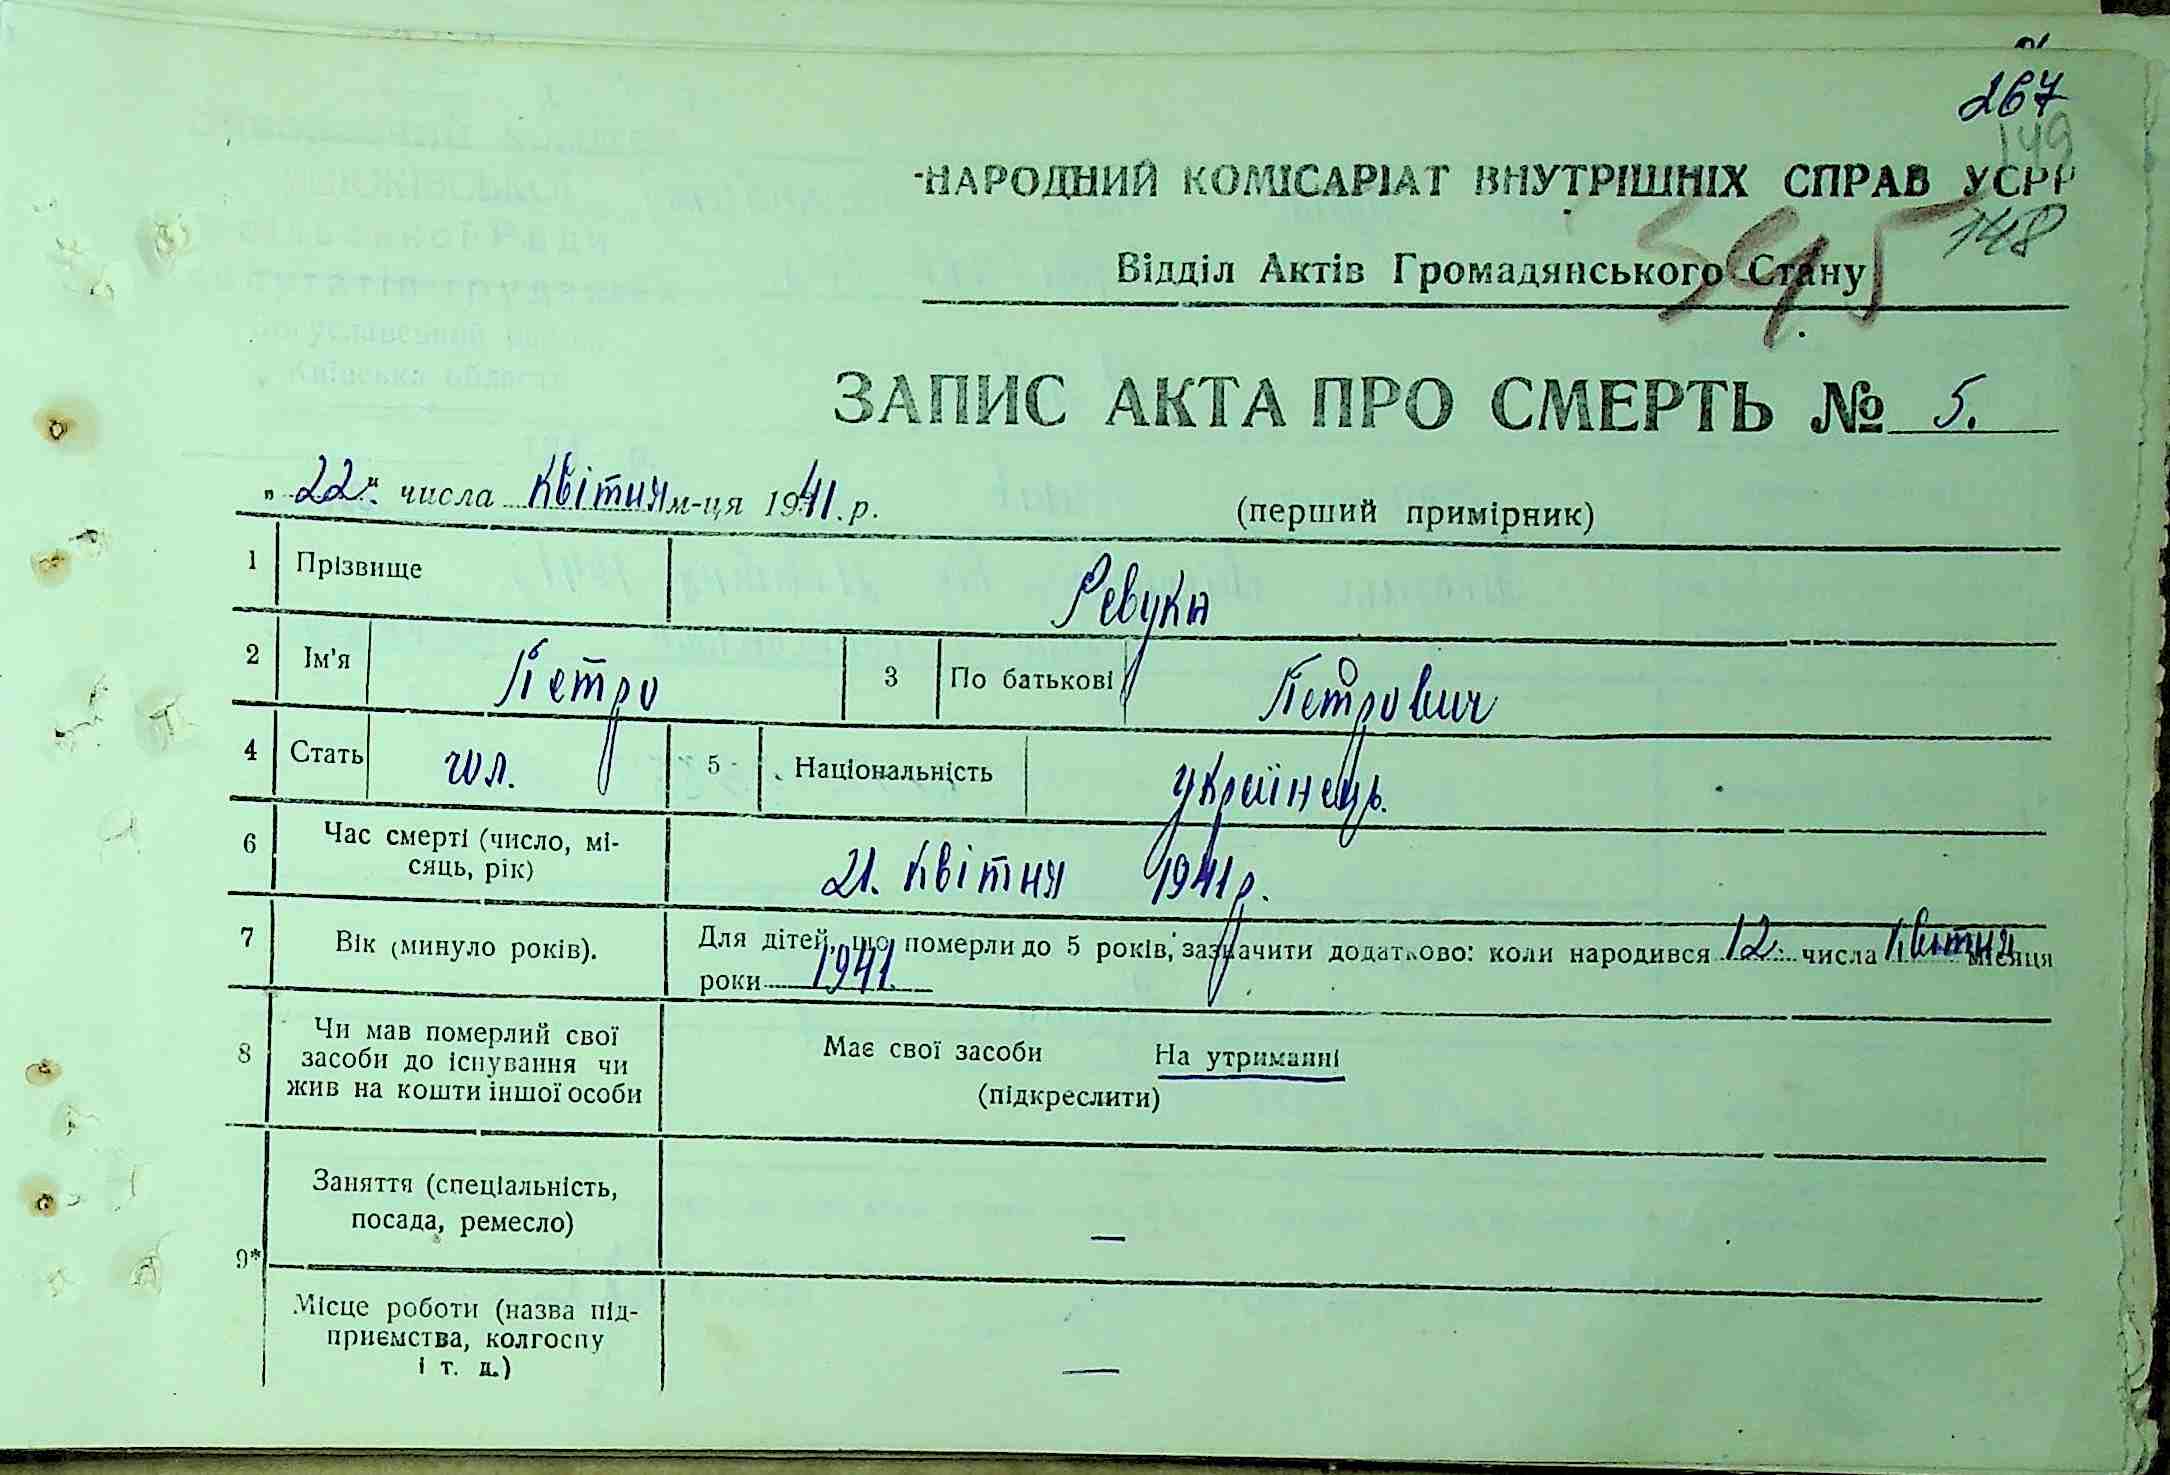 267
149
НАРОДНИЙ КОМІСАРІАТ ВНУТРІШНІХ СПРАВ УСРР
148
345
Відділ Актів Громадянського Стану
ЗАПИС АКТА ПРО СМЕРТЬ № 5.
„22“ числа Квітня м-ця 1941 р. (перший примірник)
1 Прізвище Ревука
2 Ім'я Петро 3 По батькові Петрович
4 Стать чол. 5 Національність українець.
6 Час смерті (число, мі-
сяць, рік) 21. Квітня 1941 р.
7 Вік (минуло років). Для дітей, що померли до 5 років, зазначити додатково: коли народився 12 числа Квітня місяця
роки 1941
8 Чи мав померлий свої
засоби до існування чи
жив на кошти іншої особи
Має свої засоби На утриманні
(підкреслити)
9*
Заняття (спеціальність,
посада, ремесло) —
Місце роботи (назва під-
приємства, колгоспу
і т. д.) —